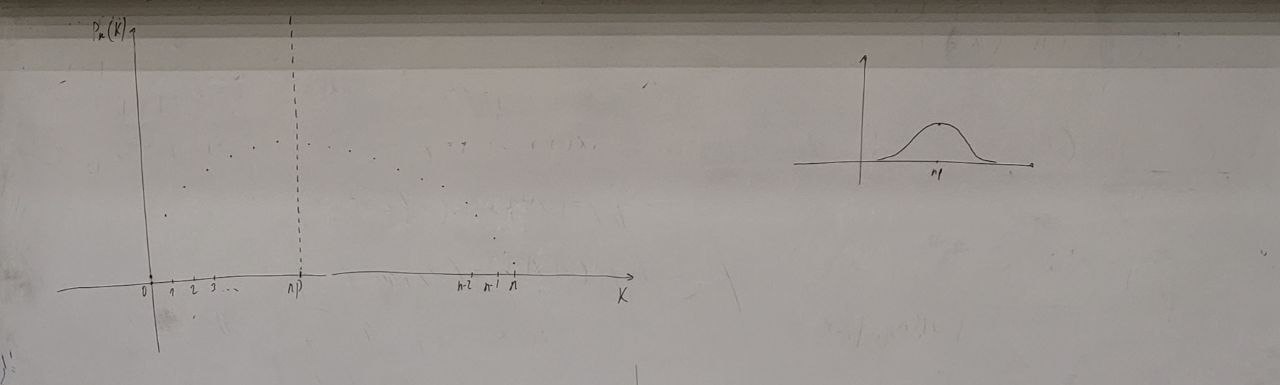 Pₙ(K)
0 1 2 3 ... np n-2 n-1 n
K
np